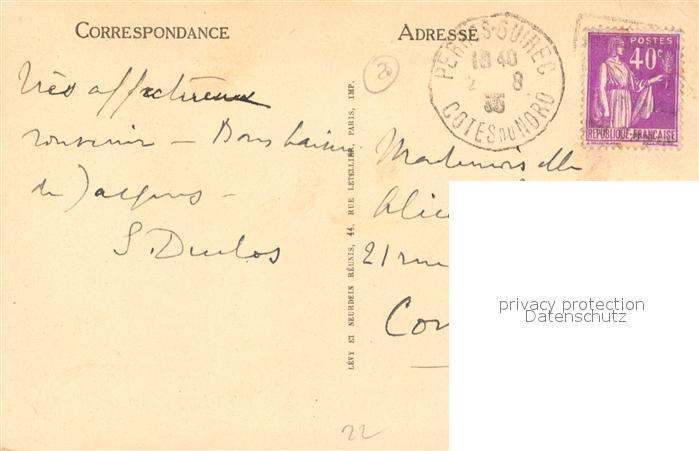 CORRESPONDANCE
ADRESSE
Très affectueux
souvenir – Bons baisers
de Jacques –
S. Duclos
20
LÉVY ET NEURDEIN RÉUNIS, 44, RUE LETELLIER, PARIS, IMP.
PERROS-GUIREC
18 40
2 8
35
COTES DU NORD
POSTES
40c
RÉPUBLIQUE FRANÇAISE
Mademoiselle
Alic
21 rue
Com
22
privacy protection
Datenschutz